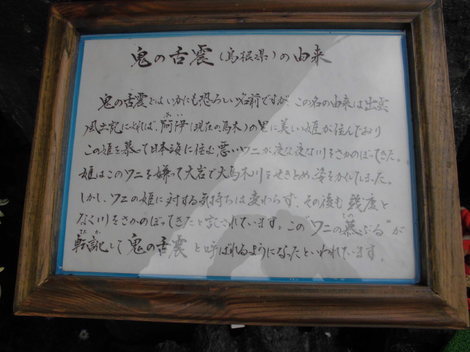 鬼の舌震(島根県)の由来
鬼の舌震とはいかにも恐ろしい名前ですが、この名の由来は出雲
風土記によれば、阿伊(現在の馬木)の里に美しい姫が住んでおり
この姫を慕って日本海に住む悪いワニが夜な夜な川をさかのぼってきた。
姫はこのワニを嫌って大岩で大馬木川をせきとめ姿をかくしてしまった。
しかし、ワニの姫に対する気持ちは変わらず、その後も幾度と
なく川をさかのぼってきたと記されています。この"ワニの慕ぶる"が
転訛して鬼の舌震と呼ばれるようになったといわれています。